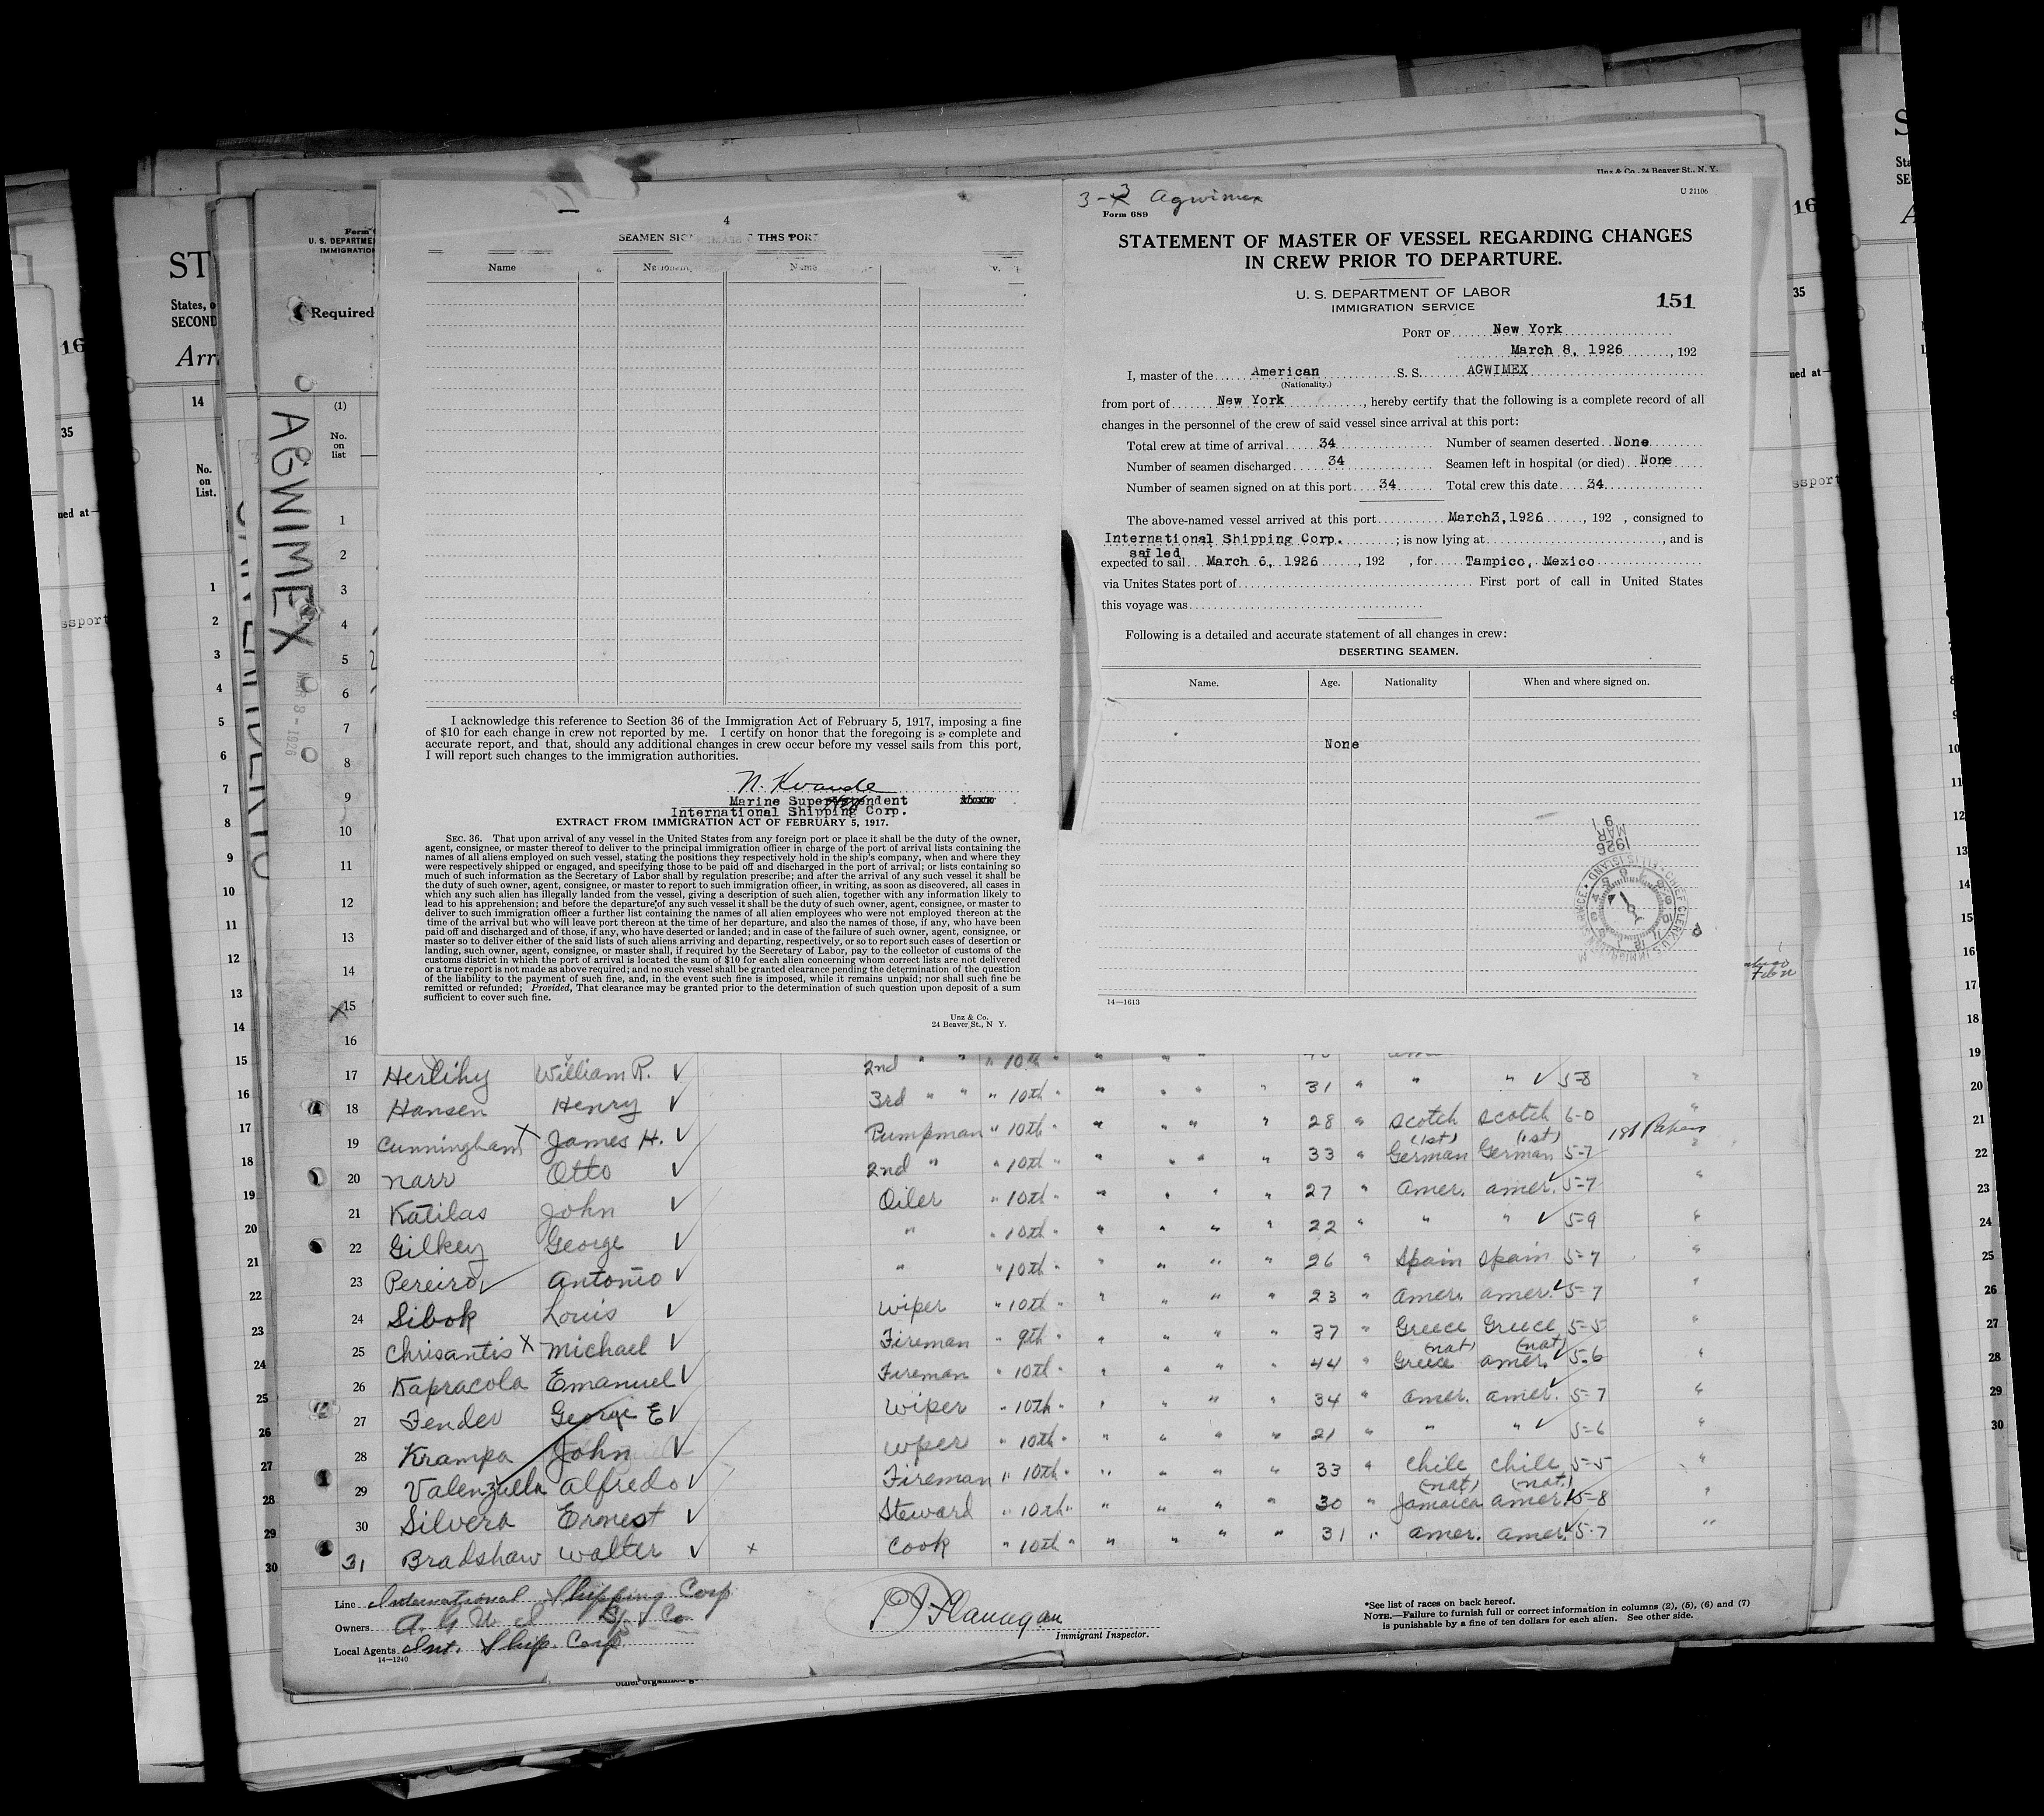 Unz & Co., 24 Beaver St., N. Y.
4
SEAMEN SIG THIS PORT
Name
Name
I acknowledge this reference to Section 36 of the Immigration Act of February 5, 1917, imposing a fine
of $10 for each change in crew not reported by me. I certify on honor that the foregoing is a complete and
accurate report, and that, should any additional changes in crew occur before my vessel sails from this port,
I will report such changes to the immigration authorities.
N. Kvande
Marine Superintendent
International Shipping Corp.
EXTRACT FROM IMMIGRATION ACT OF FEBRUARY 5, 1917.
SEC. 36. That upon arrival of any vessel in the United States from any foreign port or place it shall be the duty of the owner,
agent, consignee, or master thereof to deliver to the principal immigration officer in charge of the port of arrival lists containing the
names of all aliens employed on such vessel, stating the positions they respectively hold in the ship's company, when and where they
were respectively shipped or engaged, and specifying those to be paid off and discharged in the port of arrival; or lists containing so
much of such information as the Secretary of Labor shall by regulation prescribe; and after the arrival of any such vessel it shall be
the duty of such owner, agent, consignee, or master to report to such immigration officer, in writing, as soon as discovered, all cases in
which any such alien has illegally landed from the vessel, giving a description of such alien, together with any information likely to
lead to his apprehension; and before the departure of any such vessel it shall be the duty of such owner, agent, consignee, or master to
deliver to such immigration officer a further list containing the names of all alien employees who were not employed thereon at the
time of the arrival but who will leave port thereon at the time of her departure, and also the names of those, if any, who have been
paid off and discharged and of those, if any, who have deserted or landed; and in case of the failure of such owner, agent, consignee, or
master so to deliver either of the said lists of such aliens arriving and departing, respectively, or so to report such cases of desertion or
landing, such owner, agent, consignee, or master shall, if required by the Secretary of Labor, pay to the collector of customs of the
customs district in which the port of arrival is located the sum of $10 for each alien concerning whom correct lists are not delivered
or a true report is not made as above required; and no such vessel shall be granted clearance pending the determination of the question
of the liability to the payment of such fine, and, in the event such fine is imposed, while it remains unpaid; nor shall such fine be
remitted or refunded; Provided, That clearance may be granted prior to the determination of such question upon deposit of a sum
sufficient to cover such fine.
Unz & Co.
24 Beaver St., N Y.
3-3 Agwimex
U 21106
Form 689
STATEMENT OF MASTER OF VESSEL REGARDING CHANGES
IN CREW PRIOR TO DEPARTURE.
U. S. DEPARTMENT OF LABOR
IMMIGRATION SERVICE
151
PORT OF New York
March 8, 1926, 192
I, master of the American S. S. AGWIMEX
(Nationality.)
from port of New York, hereby certify that the following is a complete record of all
changes in the personnel of the crew of said vessel since arrival at this port:
Total crew at time of arrival 34 Number of seamen deserted None
Number of seamen discharged 34 Seamen left in hospital (or died) None
Number of seamen signed on at this port 34 Total crew this date 34
The above-named vessel arrived at this port March 3, 1926, 192 , consigned to
International Shipping Corp. ; is now lying at , and is
sailed
expected to sail March 6, 1926, 192 , for Tampico, Mexico
via Unites States port of First port of call in United States
this voyage was
Following is a detailed and accurate statement of all changes in crew:
DESERTING SEAMEN.
Name. Age. Nationality When and where signed on.
None
1926
MAR
9
14—1613
Form
U. S. DEPARTME
IMMIGRATION
Required
AGWIMEX
MAR 8 - 1926
(1)
No.
on
list
1
2
3
4
5
6
7
8
9
10
11
12
13
14
15
16
17 Herlihy William R. 2nd " " " 10th "
18 Hansen Henry 3rd " " " 10th " " " " " 31 " " " 5-8 "
19 Cunningham James H. Pumpman " 10th " " " " " 28 " Scotch Scotch 6-0 "
(1st) (1st) 1st Papers
20 Narr Otto 2nd " " 10th " " " " " 33 " German German 5-7 "
21 Katilas John Oiler " 10th " " " " " 27 " amer. amer. 5-7 "
22 Gilkey George " " 10th " " " " " 22 " " " 5-9 "
23 Pereiro Antonio " " 10th " " " " " 26 " Spain Spain 5-7 "
24 Sibok Louis Wiper " 10th " " " " " 23 " amer. amer. 5-7 "
25 Chrisantis Michael Fireman " 9th " " " " " 37 " Greece Greece 5-5 "
(nat) (nat)
26 Kapracola Emanuel Fireman " 10th " " " " " 44 " Greece amer. 5-6 "
27 Fender George E Wiper " 10th " " " " 34 " amer. amer. 5-7 "
28 Krampa John Wper " 10th " " " " " 21 " " " 5-6 "
29 Valenzuella Alfredo Fireman " 10th " " " " " 33 " Chile Chile 5-5 "
(nat) (nat.)
30 Silvera Ernest Steward " 10th " " " " " 30 " Jamaica amer. 5-8 "
31 Bradshaw Walter x Cook " 10th " " " " " 31 " amer. amer. 5-7 "
Line International Shipping Corp
Owners A. G. W. I. S/S Co.
Local Agents Int. Ship. Corp
14—1240
Flanagan
Immigrant Inspector.
*See list of races on back hereof.
NOTE.—Failure to furnish full or correct information in columns (2), (5), (6) and (7)
is punishable by a fine of ten dollars for each alien. See other side.
ST
States, o
SECOND
Arr
14
No.
on
List.
16
35
ued at—
ssport